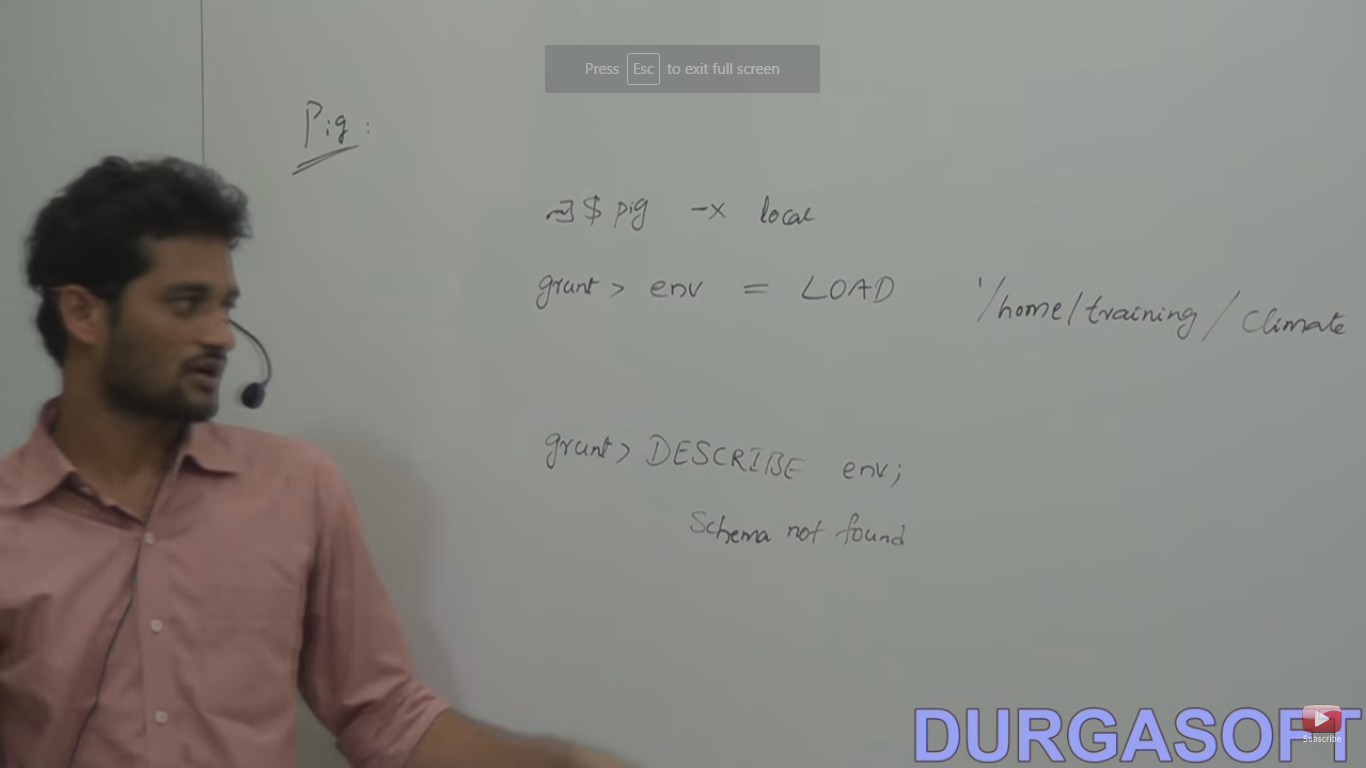 Press Esc to exit full screen
Pig:
$ pig -x local
grunt> env = LOAD '/home/training/climate
grunt> DESCRIBE env;
Schema not found
DURGASOFT
Subscribe